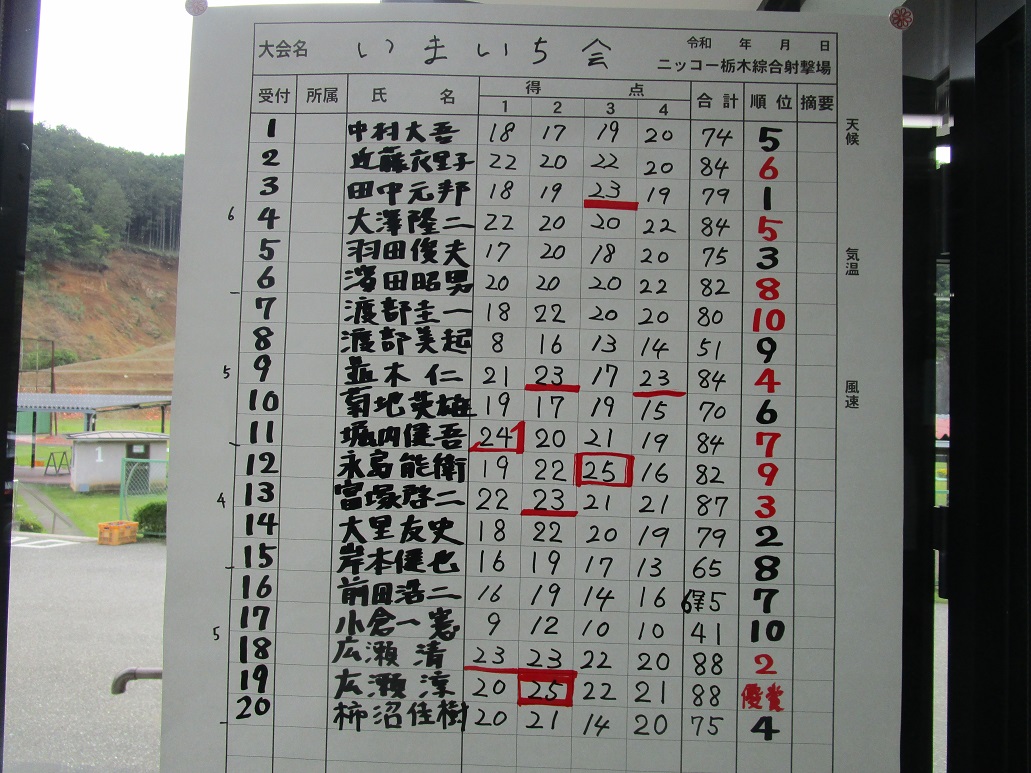 大会名 いまいち会 令和 年 月 日
ニッコー栃木綜合射撃場
受付 所属 氏 名 得 点 合計 順位 摘要
1 2 3 4
天候
1 中村大吾 18 17 19 20 74 5
2 近藤衣里子 22 20 22 20 84 6
3 田中元邦 18 19 23 19 79 1
6
4 大澤隆二 22 20 20 22 84 5
5 羽田俊夫 17 20 18 20 75 3
気温
6 濱田昭男 20 20 20 22 82 8
7 渡部圭一 18 22 20 20 80 10
8 渡部美起 8 16 13 14 51 9
5
9 並木仁 21 23 17 23 84 4
風速
10 菊地英雄 19 17 19 15 70 6
11 堀内健吾 24 20 21 19 84 7
12 永島能衛 19 22 25 16 82 9
4
13 富塚啓二 22 23 21 21 87 3
14 大里友史 18 22 20 19 79 2
15 岸本健也 16 19 17 13 65 8
16 前田浩二 16 19 14 16 65 7
5
17 小倉一憲 9 12 10 10 41 10
18 広瀬清 23 23 22 20 88 2
19 広瀬涼 20 25 22 21 88 優賞
20 柿沼佳樹 20 21 14 20 75 4
1